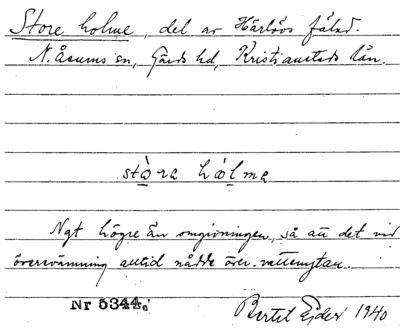 Store holme, del av Härlövs fälad.
N. Åsums sn, Gärds hd, Kristianstads län.
stòra hólma
Ngt högre än omgivningen, så att det vid
översvämning alltid nådde över vattenytan.
Nr 5344.
Bertil Ejder 1940